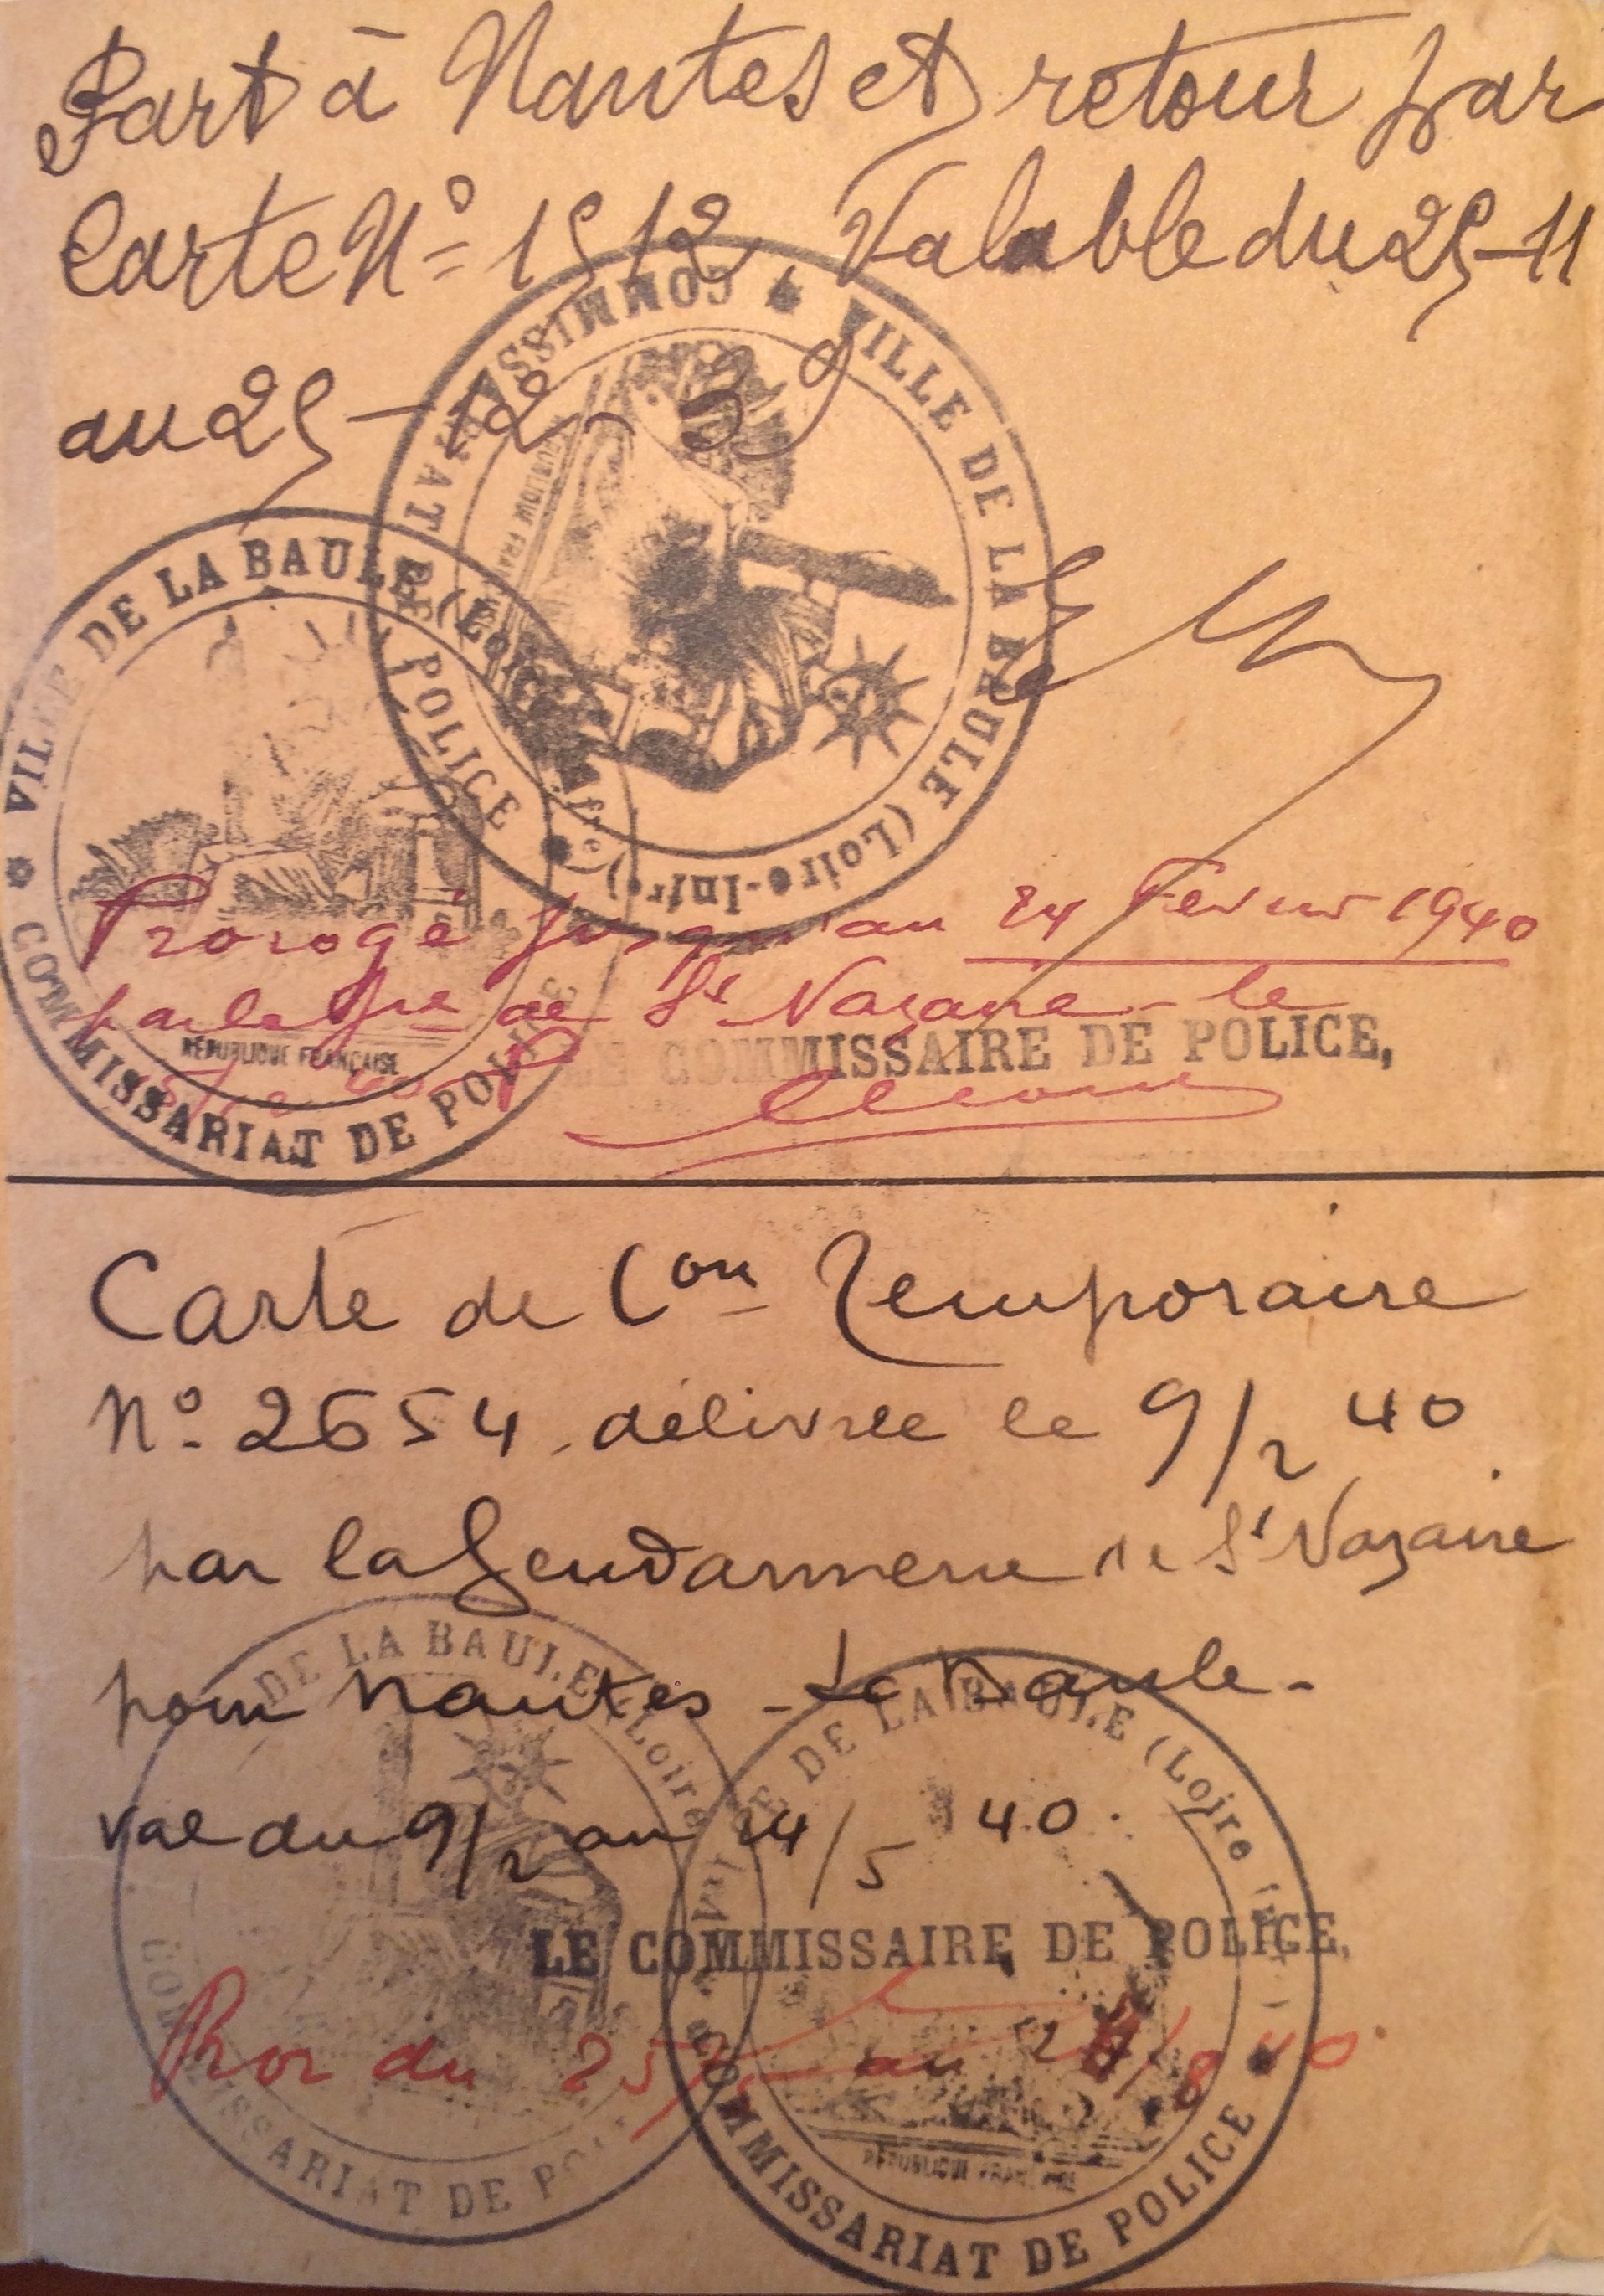 Part à Nantes et retour par
Carte N° 1512 Valable du 25-11
au 25-12-39
VILLE DE LA BAULE (Loire-Infre)
COMMISSARIAT DE POLICE
VILLE DE LA BAULE (Loire-Infre)
COMMISSARIAT DE POLICE
RÉPUBLIQUE FRANÇAISE
Prorogé jusqu'au 24 Février 1940
par la Gie de St Nazaire - le
LE COMMISSAIRE DE POLICE,
Carte de Con Temporaire
N° 2654 délivrée le 9/2 40
par la Gendarmerie de St Nazaire
pour Nantes - La Baule -
val du 9/2 au 24/5 40.
DE LA BAULE (Loire
COMMISSARIAT DE PO
DE LA BAULE (Loire
COMMISSARIAT DE POLICE
RÉPUBLIQUE FRANÇAISE
LE COMMISSAIRE DE POLICE,
Pror du 25/5 au 24/8 40.